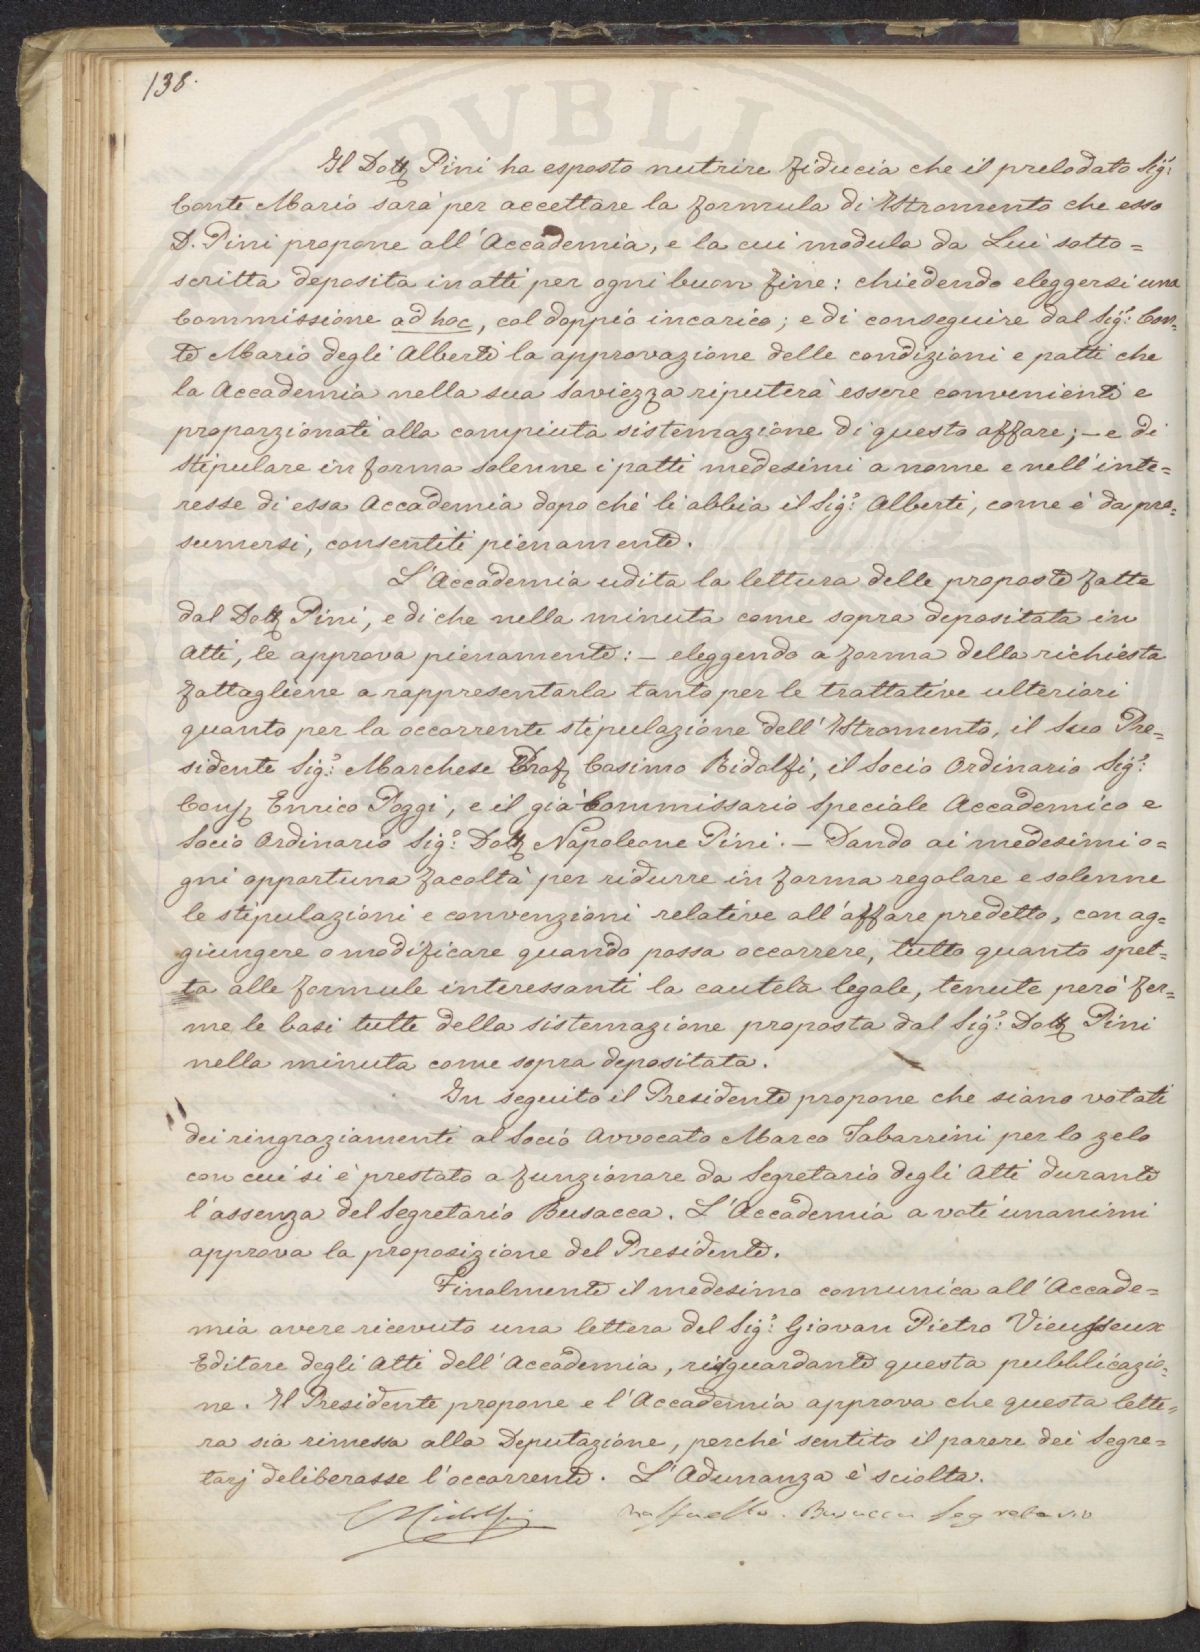 138.
PVBLIC
Il Dott. Pini ha esposto nutrire fiducia che il prelodato Sig:
Conte Mario sarà per accettare la formula di Istromento che esso
D. Pini propone all'Accademia, e la cui modula da Lui sotto=
scritta deposita in atti per ogni buon fine: chiedendo eleggersi una
Commissione ad hoc, col doppio incarico; e di conseguire dal Sig: Con=
te Mario degli Alberti la approvazione delle condizioni e patti che
la Accademia nella sua Saviezza riputerà essere convenienti e
proporzionati alla compiuta sistemazione di questo affare; – e di
stipulare in forma solenne i patti medesimi a nome e nell'inte=
resse di essa Accademia dopo chè li abbia il Sig: Alberti, come è da pre=
sumersi, consentiti pienamente.
L'Accademia udita la lettura delle proposte fatte
dal Dott. Pini, e di che nella minuta come sopra depositata in
Atti, le approva pienamente: – eleggendo a forma della richiesta
fattagliene a rappresentarla tanto per le trattative ulteriori
quanto per la occorrente stipulazione dell'Istromento, il Suo Pre=
sidente Sig: Marchese Prof. Cosimo Ridolfi, il Socio Ordinario Sig:
Conf. Enrico Poggi, e il già Commissario Speciale Accademico e
Socio Ordinario Sig: Dott. Napoleone Pini. – Dando ai medesimi o=
gni opportuna facoltà per ridurre in forma regolare e solenne
le stipulazioni e convenzioni relative all'affare predetto, con ag=
giungere o modificare quando possa occorrere, tutto quanto spet=
ta alle formule interessanti la cautela legale, tenute però fer=
me le basi tutte della sistemazione proposta dal Sig: Dott. Pini
nella minuta come sopra depositata.
In seguito il Presidente propone che siano votati
dei ringraziamenti al Socio Avvocato Marco Tabarrini per lo zelo
con cui si è prestato a funzionare da Segretario degli Atti durante
l'assenza del Segretario Busacca. L'Accademia a voti unanimi
approva la proposizione del Presidente.
Finalmente il medesimo comunica all'Accade=
mia avere ricevuto una lettera del Sig: Giovan Pietro Vieusseux
Editore degli Atti dell'Accademia, risguardante questa pubblicazio=
ne. Il Presidente propone e l'Accademia approva che questa lette=
ra sia rimessa alla Deputazione, perchè sentito il parere dei Segre=
tarj deliberasse l'occorrente. L'Adunanza è sciolta.
CRidolfi Raffaello Busacca Segretario